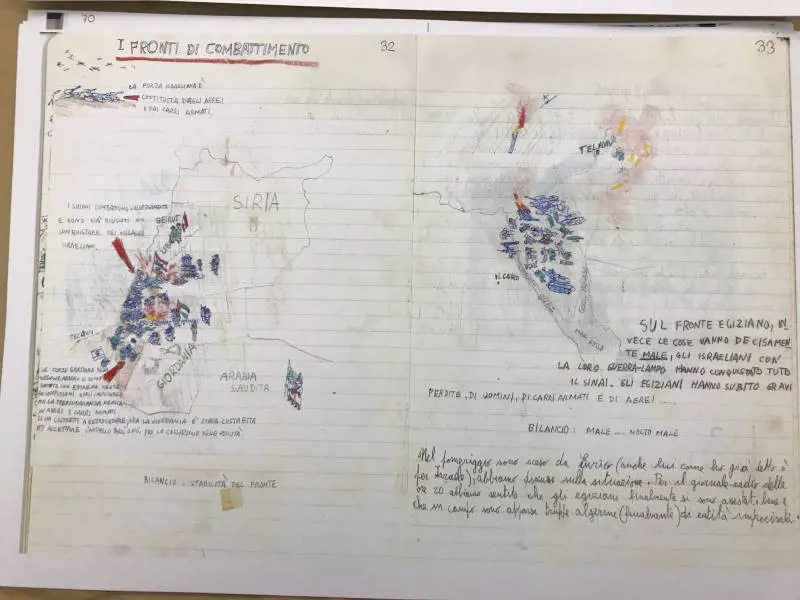 70
I FRONTI DI COMBATTIMENTO
32
LA FORZA ISRAELIANA È
COSTITUITA DAGLI AEREI
E DAI CARRI ARMATI.
SIRIA
I SIRIANI COMBATTONO VALOROSAMENTE
E SONO GIÀ RIUSCITI A
CONQUISTARE DEI VILLAGGI
ISRAELIANI.
BEIRUT
TELAVIV
GIORDANIA
ARABIA
SAUDITA
LE FORZE GIORDANE
MA LA PREPONDERANZA
IN AEREI E CARRI ARMATI
LI HA COSTRETTI A RETROCEDERE, ORA LA GIORDANIA È STATA COSTRETTA
AD ACCETTARE L'APPELLO DELL'ONU, PER LA CESSAZIONE DELLE OSTILITÀ.
BILANCIO: STABILITÀ DEL FRONTE
33
TELAVIV
IL CAIRO
MAR ROSSO
SUL FRONTE EGIZIANO, IN
VECE LE COSE VANNO DECISAMEN
TE MALE, GLI ISRAELIANI CON
LA LORO GUERRA-LAMPO HANNO CONQUISTATO TUTO
IL SINAI. GLI EGIZIANI HANNO SUBITO GRAVI
PERDITE, DI UOMINI, DI CARRI ARMATI E DI AEREI ....
BILANCIO: MALE .... MOLTO MALE
Nel pomeriggio sono sceso da Enrico (anche lui come ho già detto è
per Israele), abbiamo discusso sulla situazione. Per il giornale-radio delle
ore 20 abbiamo sentito che gli egiziani finalmente si sono assestati bene e
che in campo sono apparse truppe algerine (finalmente) di entità imprecisata.